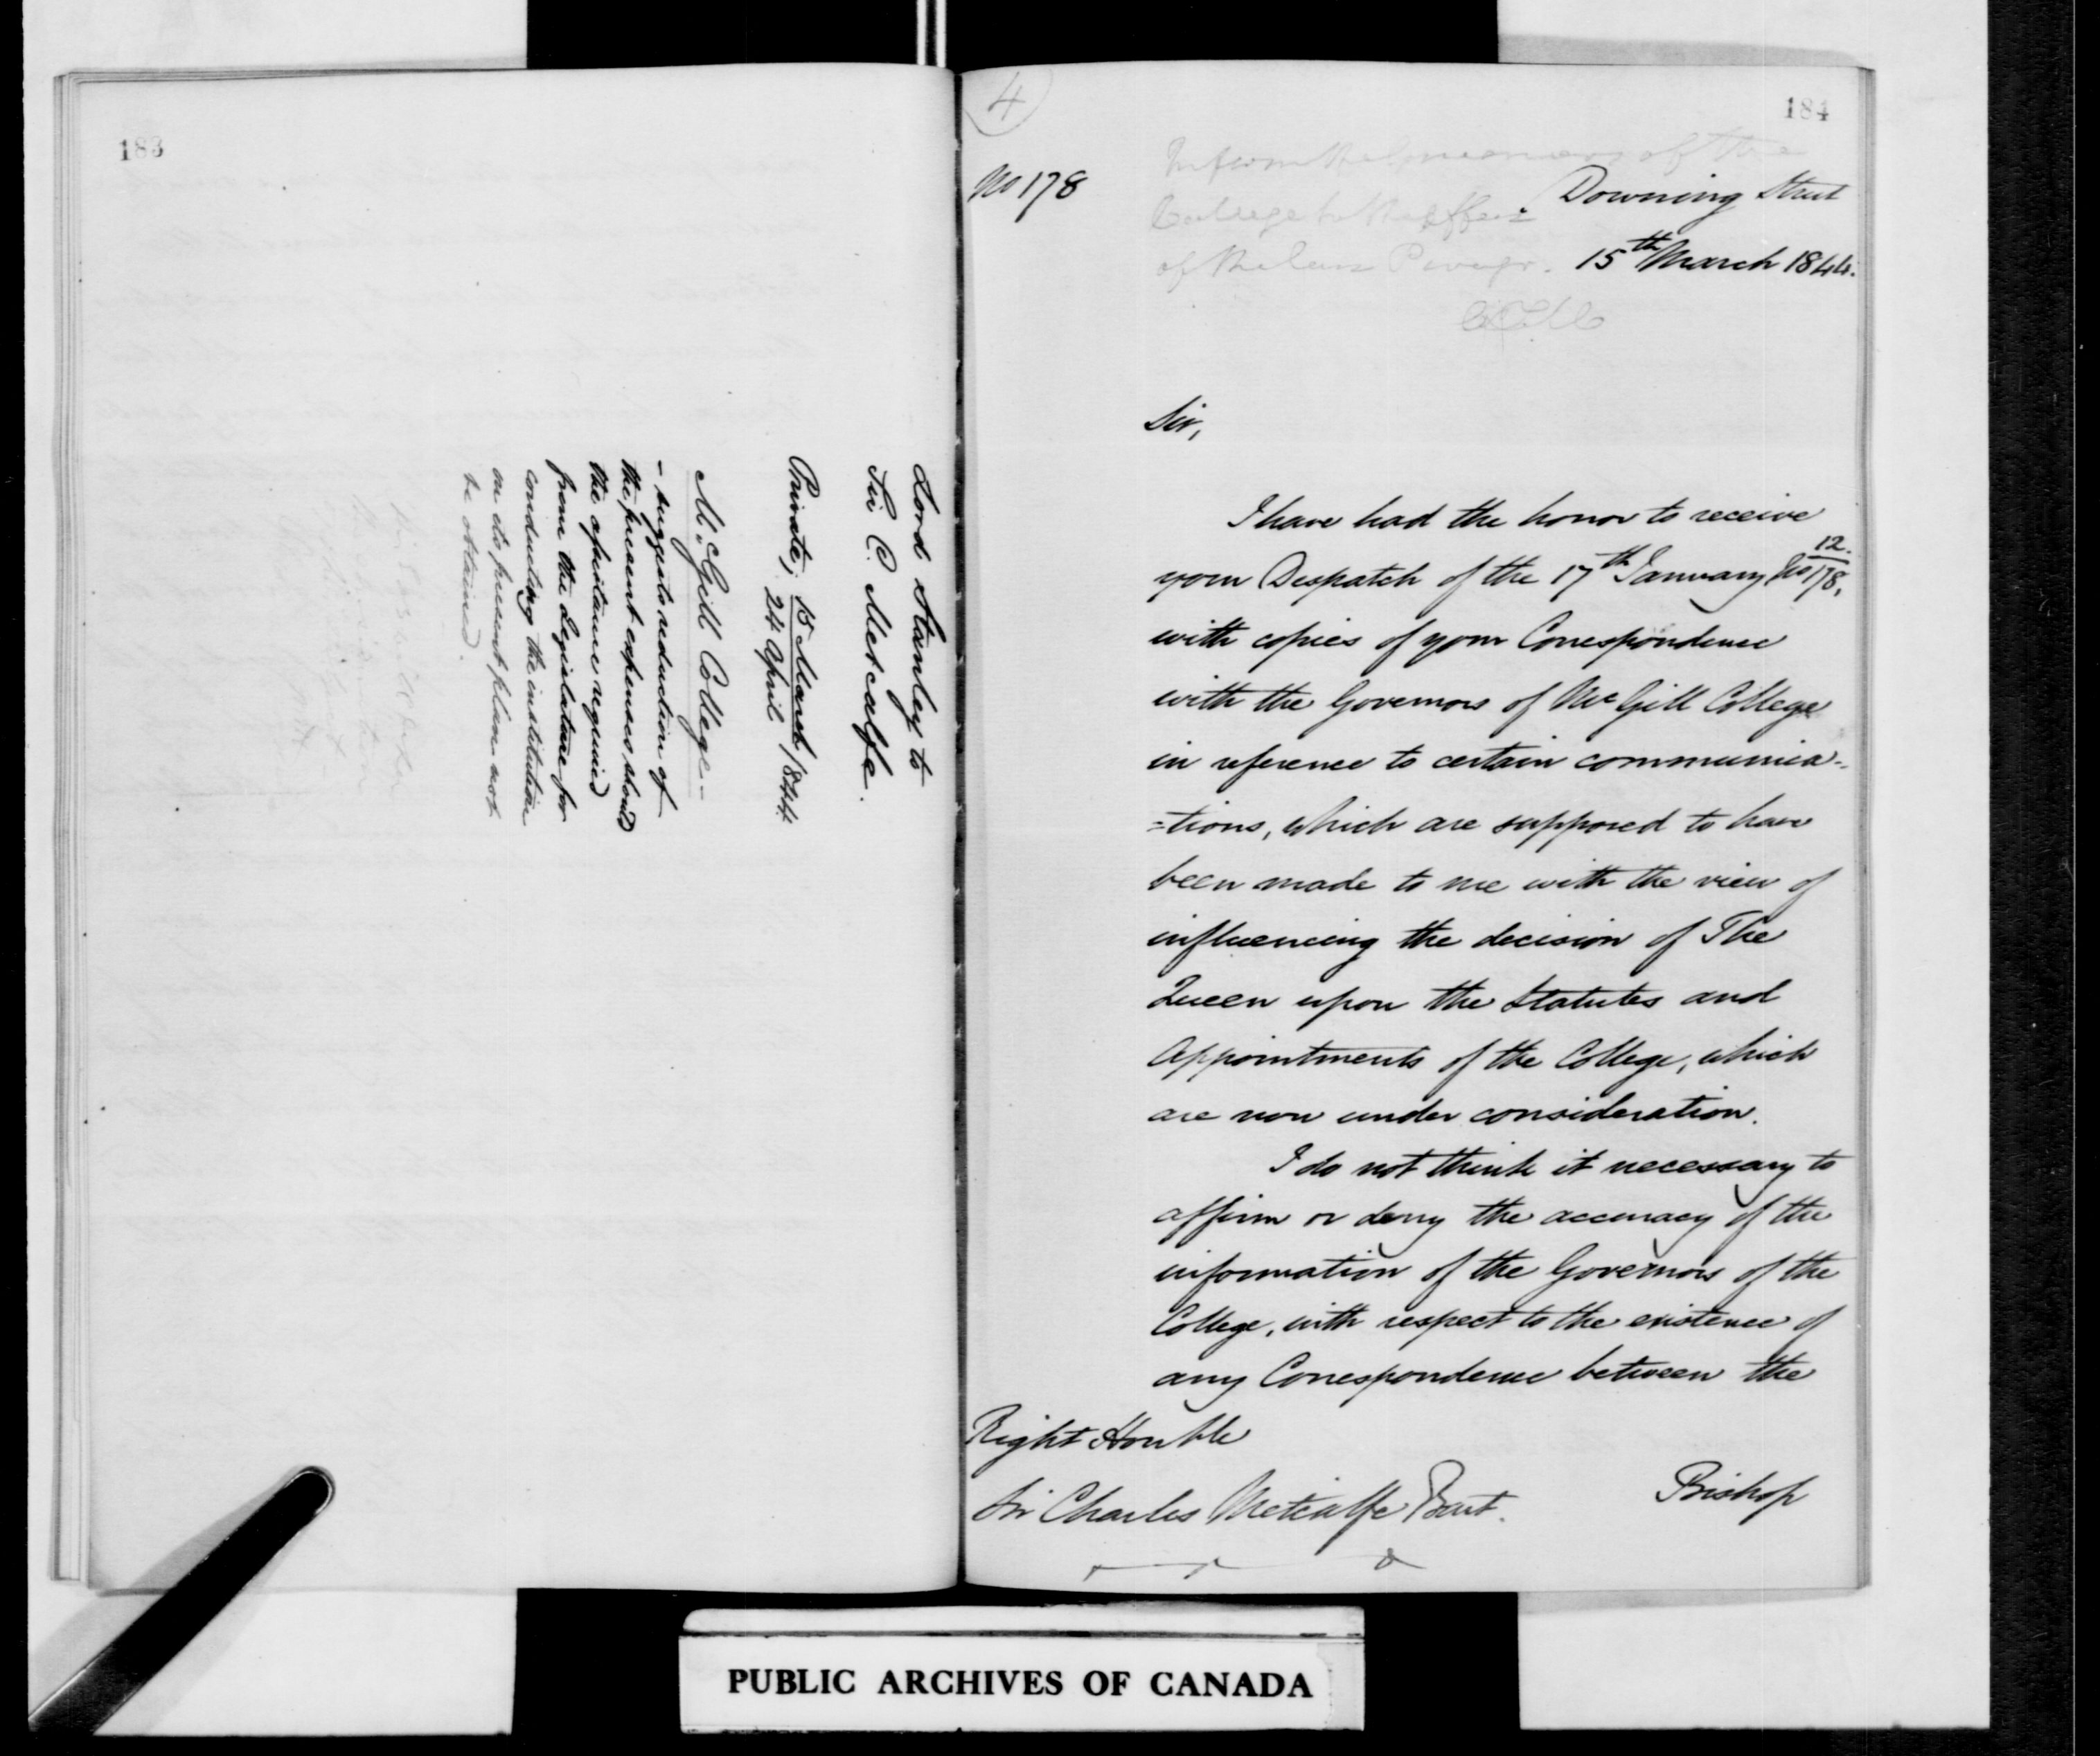 183
Lord Stanley to
Sir C. Metcalfe.
Private, 15 March / 1844.
24 April
McGill College-
- suggests reduction of
the present expenses, should
the assistance required
from the Legislature for
conducting the institution
on its present plan not
be obtained.
4
184
No 178
Inform the Governors of the
College to the effect
of the
Downing Street
15th March 1844.
Sir,
I have had the honor to receive
your Despatch of the 17th January, No 12/178,
with copies of your Correspondence
with the Governors of McGill College
in reference to certain communica-
=tions, which are supposed to have
been made to me with the view of
influencing the decision of The
Queen upon the Statutes and
Appointments of the College, which
are now under consideration.
I do not think it necessary to
affirm or deny the accuracy of the
information of the Governors of the
College, with respect to the existence of
any Correspondence between the
Right Honble
Sir Charles Metcalfe Bart.
Bishop
PUBLIC ARCHIVES OF CANADA